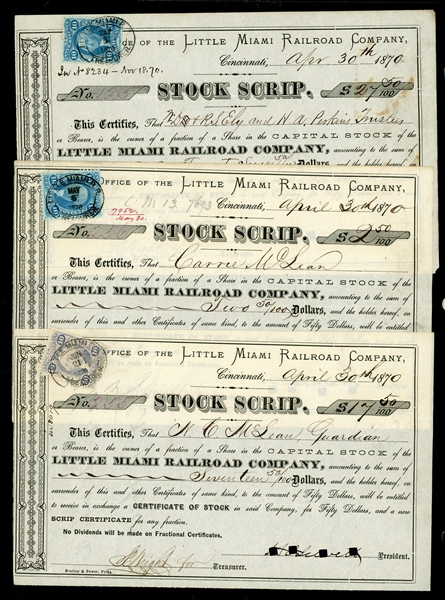 OF THE LITTLE MIAMI RAILROAD COMPANY,
Cincinnati, Apr 30th 1870
In No 8234 - Nov 18.70.
No. STOCK SCRIP. $ 27 50/100
This Certifies, That and H. A. Perkins Trustees
or Bearer, is the owner of a fraction of a Share in the CAPITAL STOCK of the
LITTLE MIAMI RAILROAD COMPANY, amounting to the sum of
Dollars, and the holder hereof,
OFFICE OF THE LITTLE MIAMI RAILROAD COMPANY,
Cincinnati, April 30th 1870
No. STOCK SCRIP. $ 2 50/100
This Certifies, That Carrie McLean
or Bearer, is the owner of a fraction of a Share in the CAPITAL STOCK of the
LITTLE MIAMI RAILROAD COMPANY, amounting to the sum of
Two 50/100 Dollars, and the holder hereof, on
surrender of this and other Certificates of same kind, to the amount of Fifty Dollars, will be entitled
OFFICE OF THE LITTLE MIAMI RAILROAD COMPANY,
Cincinnati, April 30th 1870
No. STOCK SCRIP. $ 17 50/100
This Certifies, That N C McLean, Guardian
or Bearer, is the owner of a fraction of a Share in the CAPITAL STOCK of the
LITTLE MIAMI RAILROAD COMPANY, amounting to the sum of
Seventeen 50/100 Dollars, and the holder hereof, on
surrender of this and other Certificates of same kind, to the amount of Fifty Dollars, will be entitled
to receive in exchange a CERTIFICATE OF STOCK in said Company, for Fifty Dollars, and a new
SCRIP CERTIFICATE for any fraction.
No Dividends will be made on Fractional Certificates.
President.
for Treasurer.
Bradley & Power, Print.